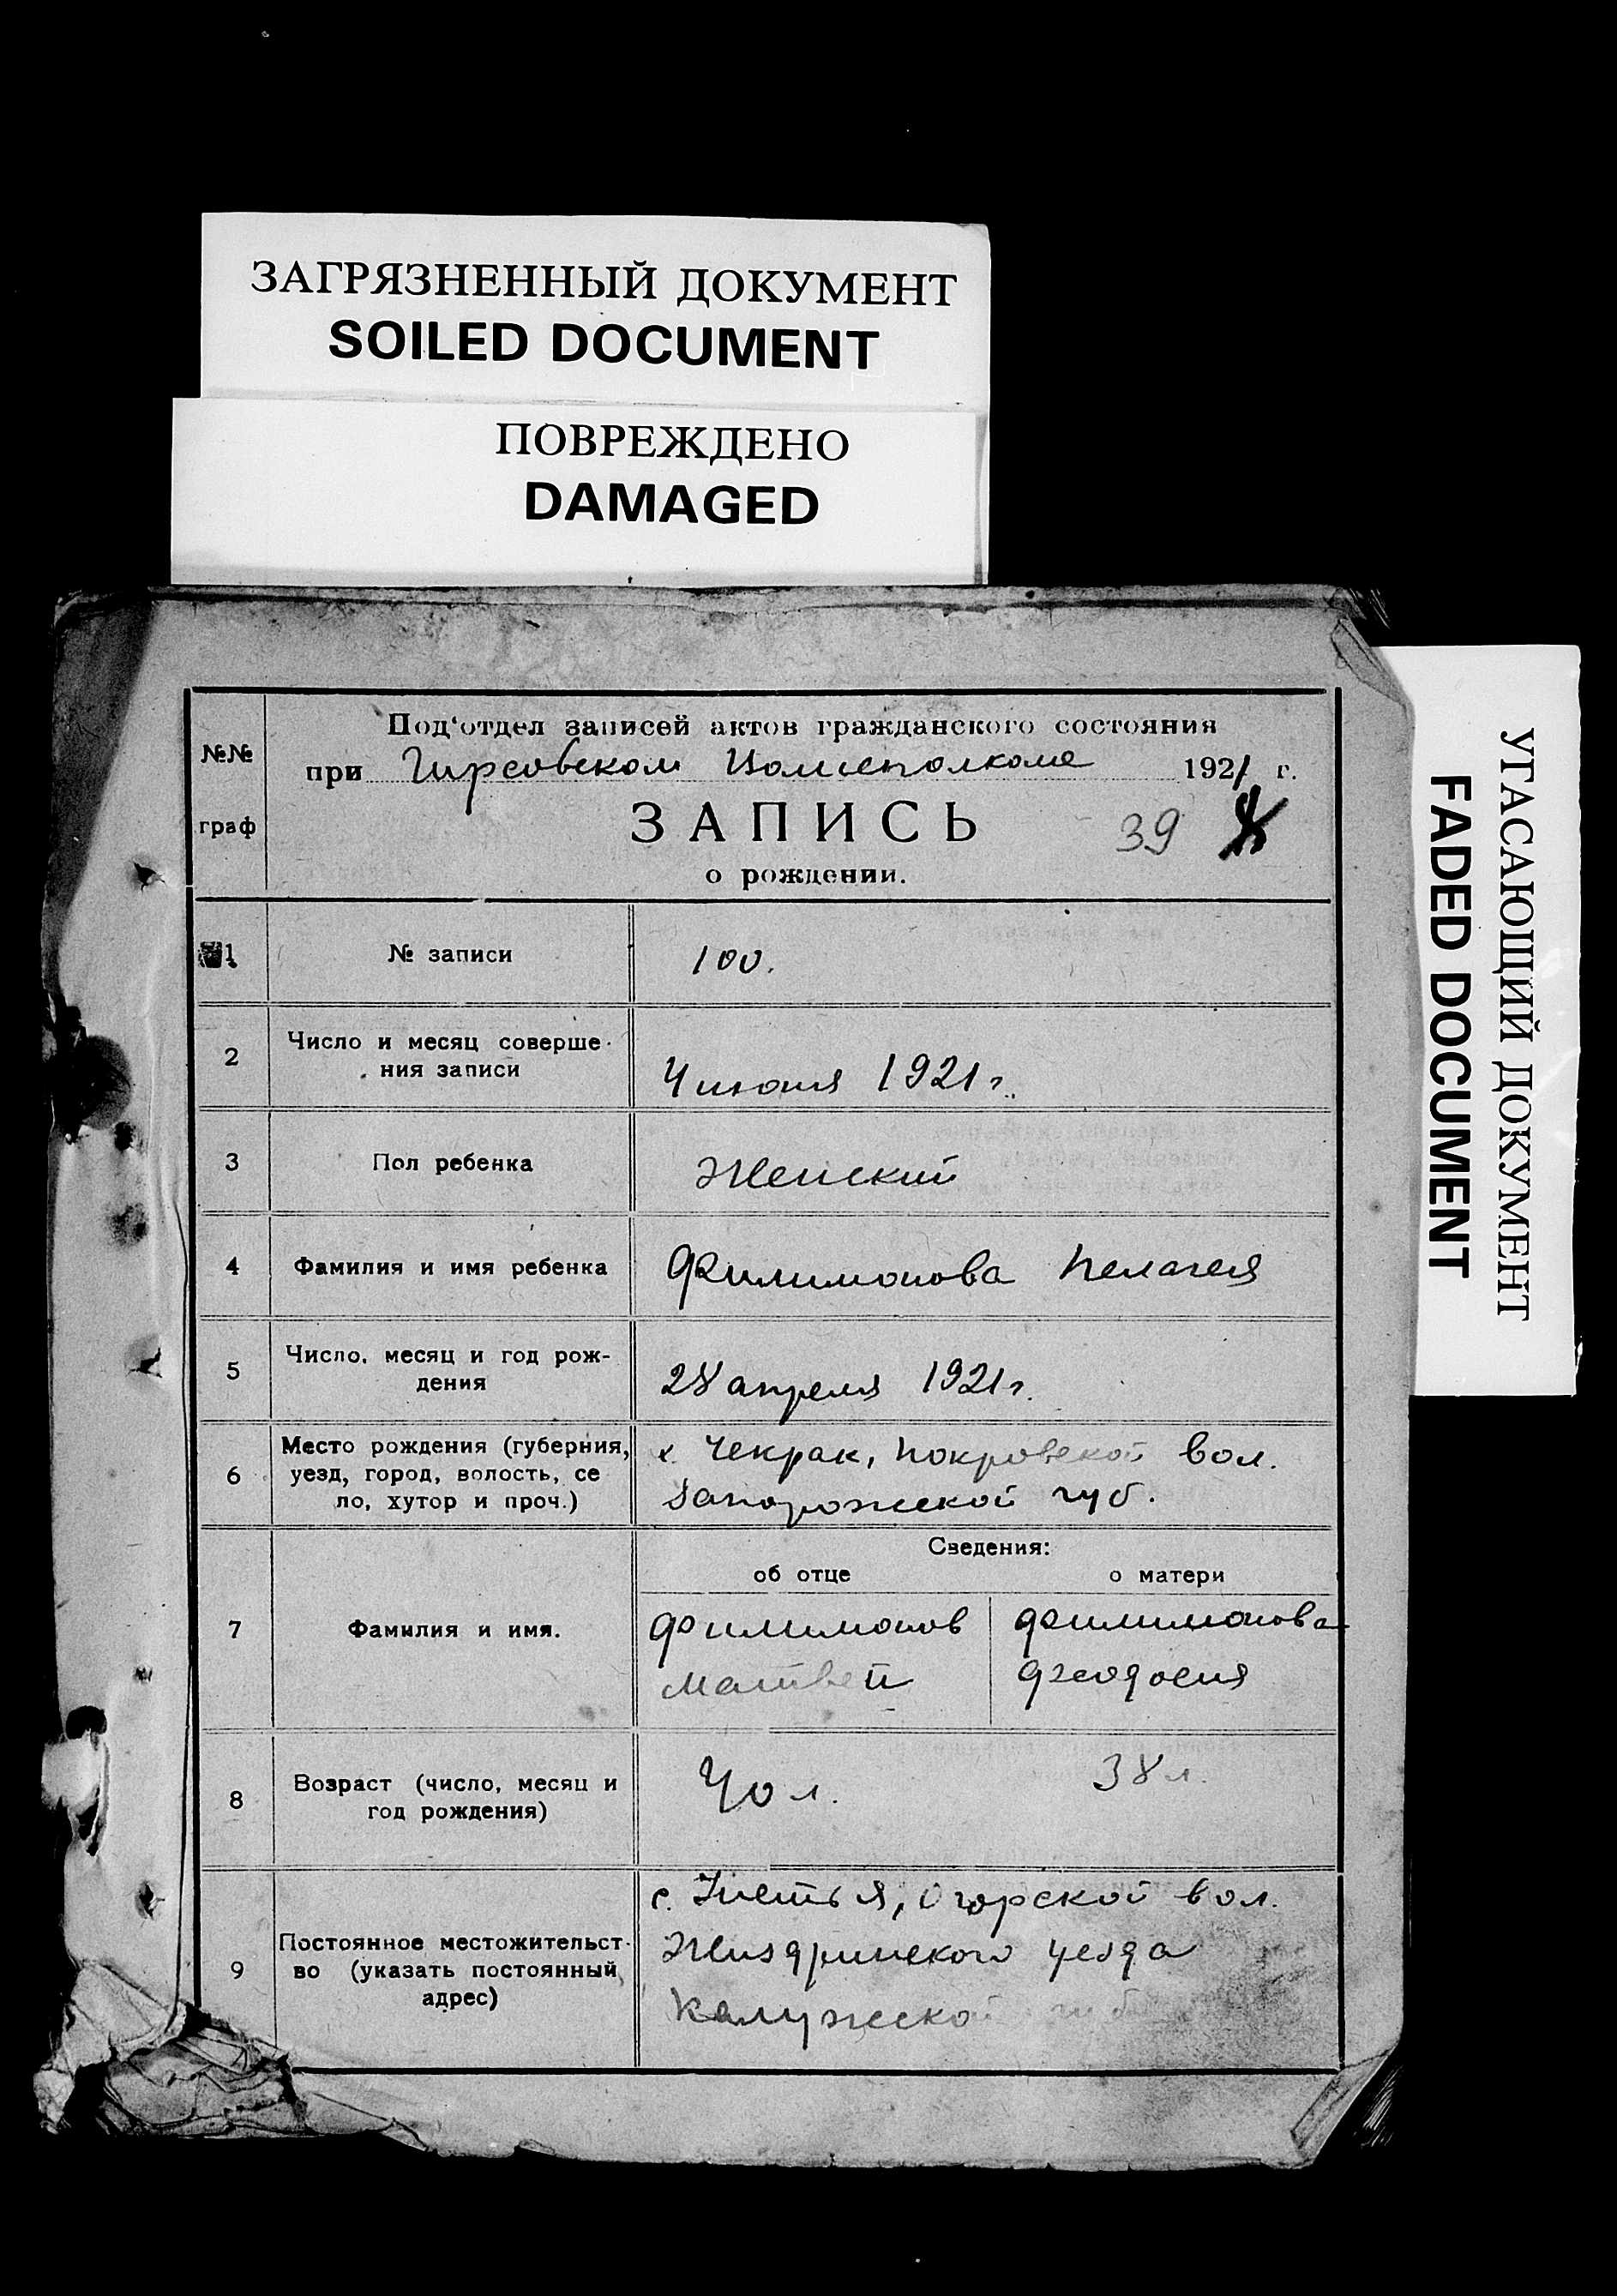 ЗАГРЯЗНЕННЫЙ ДОКУМЕНТ
SOILED DOCUMENT
ПОВРЕЖДЕНО
DAMAGED
УГАСАЮЩИЙ ДОКУМЕНТ
FADED DOCUMENT
№№
граф
Под'отдел записей актов гражданского состояния
при Гирсовском Волисполкоме 1921 г.
ЗАПИСЬ
39
о рождении.
1
№ записи
100.
2
Число и месяц соверше-
ния записи
4 июня 1921 г.
3
Пол ребенка
Женский
4
Фамилия и имя ребенка
Филимонова Пелагея
5
Число, месяц и год рож-
дения
28 апреля 1921 г.
6
Место рождения (губерния,
уезд, город, волость, се
ло, хутор и проч.)
х. Чекрак, Покровской вол.
Запорожской губ.
Сведения:
об отце
о матери
7
Фамилия и имя.
Филимонов
Матвей
Филимонова
Феодосия
8
Возраст (число, месяц и
год рождения)
40 л.
38 л.
9
Постоянное местожительст-
во (указать постоянный
адрес)
с. Огорской вол.
Жиздринского уезда
Калужской губ